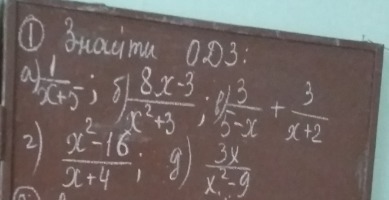 ① Знайти ОДЗ:
а) 1/(x+5); б) (8x-3)/(x²+3); в) 3/(5-x) + 3/(x+2)
г) (x²-16)/(x+4); д) 3x/(x²-9)